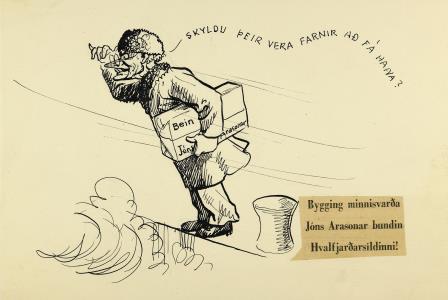 SKYLDU ÞEIR VERA FARNIR AÐ FÁ HANA?
Bein
Jóns Arasonar
Bygging minnisvarða
Jóns Arasonar bundin
Hvalfjarðarsíldinni!